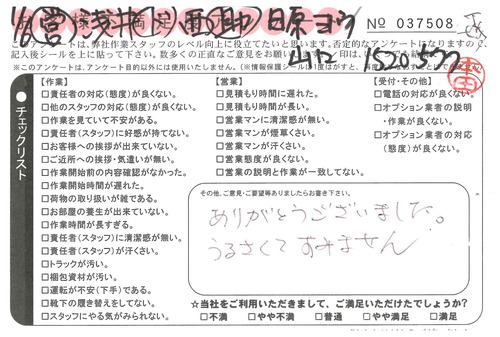 No 037508
このアンケートは、弊社作業スタッフのレベル向上に役立てたいと思います。否定的なアンケートになりますので、
チェックリスト
【作業】
□責任者の対応(態度)が良くない。
□他のスタッフの対応(態度)が良くない。
□作業を見ていて不安がある。
□責任者(スタッフ)に好感が持てない。
□お客様への挨拶が出来ていない。
□ご近所への挨拶・気遣いが無い。
□作業開始前の内容確認がなかった。
□作業開始時間が遅れた。
□荷物の取り扱いが雑である。
□お部屋の養生が出来ていない。
□作業時間が長すぎる。
□責任者(スタッフ)に清潔感が無い。
□責任者(スタッフ)が汗くさい。
□トラックが汚い。
□梱包資材が汚い。
□運転が不安(下手)である。
□靴下の履き替えをしてない。
□スタッフにやる気がみられない。
【営業】
□見積もり時間に遅れた。
□見積もり時間が長い。
□営業マンに清潔感が無い。
□営業マンが煙草くさい。
□営業マンが汗くさい。
□営業態度が良くない。
□営業の説明と作業が一致してない。
【受付・その他】
□電話の対応が良くない。
□オプション業者の説明
・作業が良くない。
□オプション業者の対応
(態度)が良くない。
その他、ご意見・ご要望等ありましたらお書き下さい。
ありがとうございました。
うるさくてすみません
☆当社をご利用いただきまして、ご満足いただけたでしょうか?
□不満 □やや不満 □普通 □やや満足 □満足